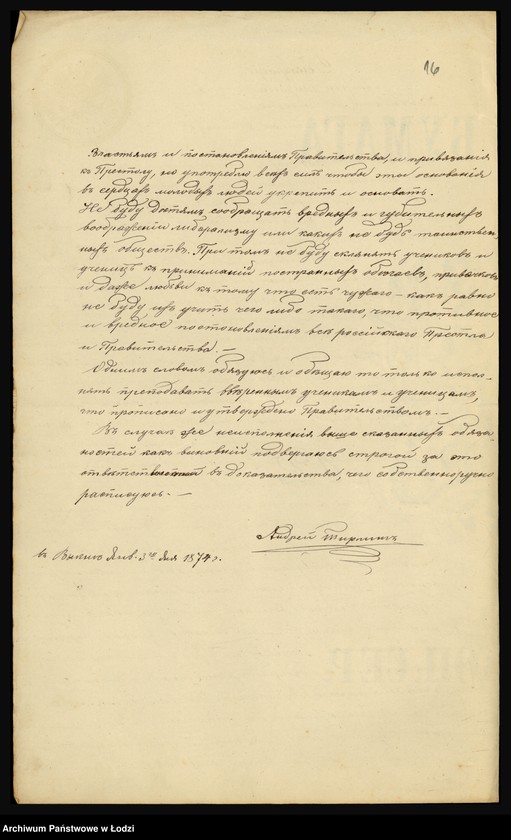 16
Властьям и постановлениям Правительства, и привязания
к Престолу, но употреблю всех сил чтобы эти основания
в сердцах молодых людей укрепить и основать.
Не буду детям сообращать вредных и губительных
воображении либерализму или каких не будь таинствен-
ных обществ. При том не буду склонять учеников и
учениц к приниманию иностранных обычаев, привычков
и даже любви к тому что есть чужаго – как равно
не буду их учить чего либо такаго, что противное
и вредное постановлениям всероссийскаго Престола
и Правительства. —
Одним словом обязуюсь и обещаю то только испол-
нять преподавать вверенным ученикам и ученицам,
что прописано и утверждено Правительством. —
В случае же неисполнения выше сказанных обяза-
ностей как виновний подвергаюсь строгой за это
ответственности в доказательства, чего собственноручно
расписуюсь. —
Андрей
в Янв. 3го дня 1874 г.
Archiwum Państwowe w Łodzi